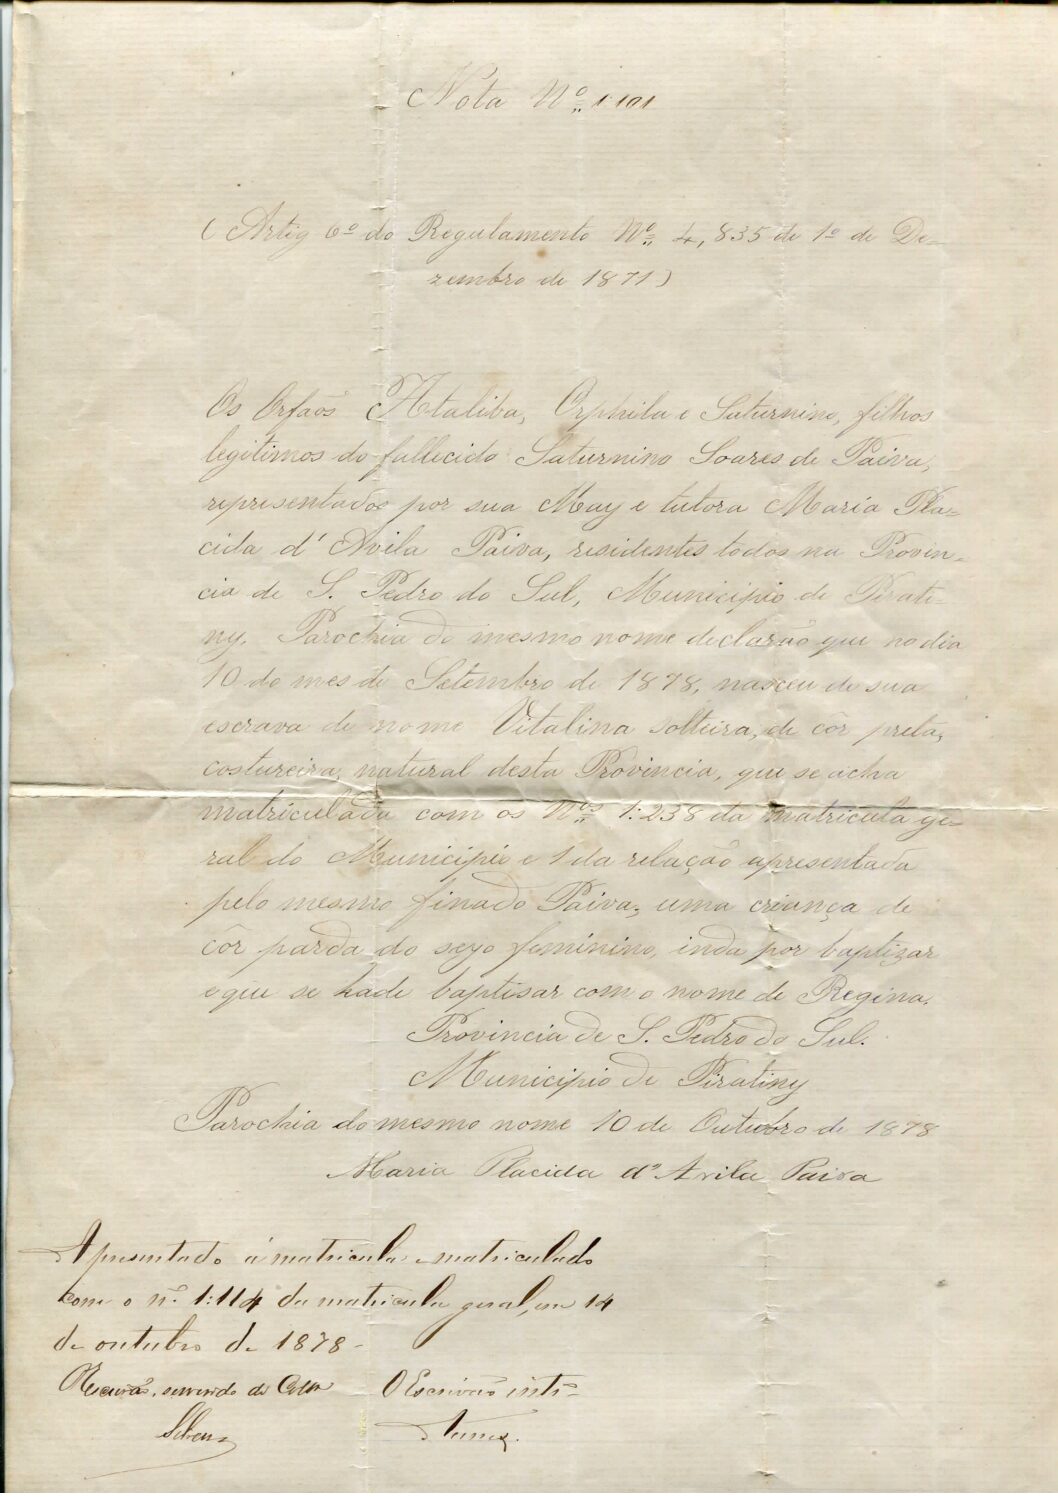 Nota Nº 1:101
(Artig 6º do Regulamento Nº 4,835 de 1º de De-
zembro de 1871)
Os Orfaõs Ataliba, Orphila e Saturnino, filhos
legitimos do fallecido Saturnino Soares de Paiva,
representados por sua May e tutora Maria Pla-
cida d'Avila Paiva, residentes todos na Provin-
cia de S. Pedro do Sul, Municipio de Pirati-
ny, Parochia do mesmo nome declarão que no dia
10 do mes de Setembro de 1878, nasceu de sua
escrava de nome Vitalina solteira, de côr preta,
costureira, natural desta Provincia, que se acha
matriculada com os Nos 1:238 da matricula ge-
ral do Municipio e 1 da relação apresentada
pelo mesmo finado Paiva, uma criança de
côr parda do sexo feminino, inda por baptizar
e que se hade baptisar com o nome de Regina.
Provincia de S. Pedro do Sul.
Municipio de Piratiny
Parochia do mesmo nome 10 de Outubro de 1878
Maria Placida d'Avila Paiva
Apresentado á matricula e matriculado
com o nº 1:114 da matricula geral, em 14
de outubro de 1878-
O Escrivão, servindo de O Escrivão intº
Nunes